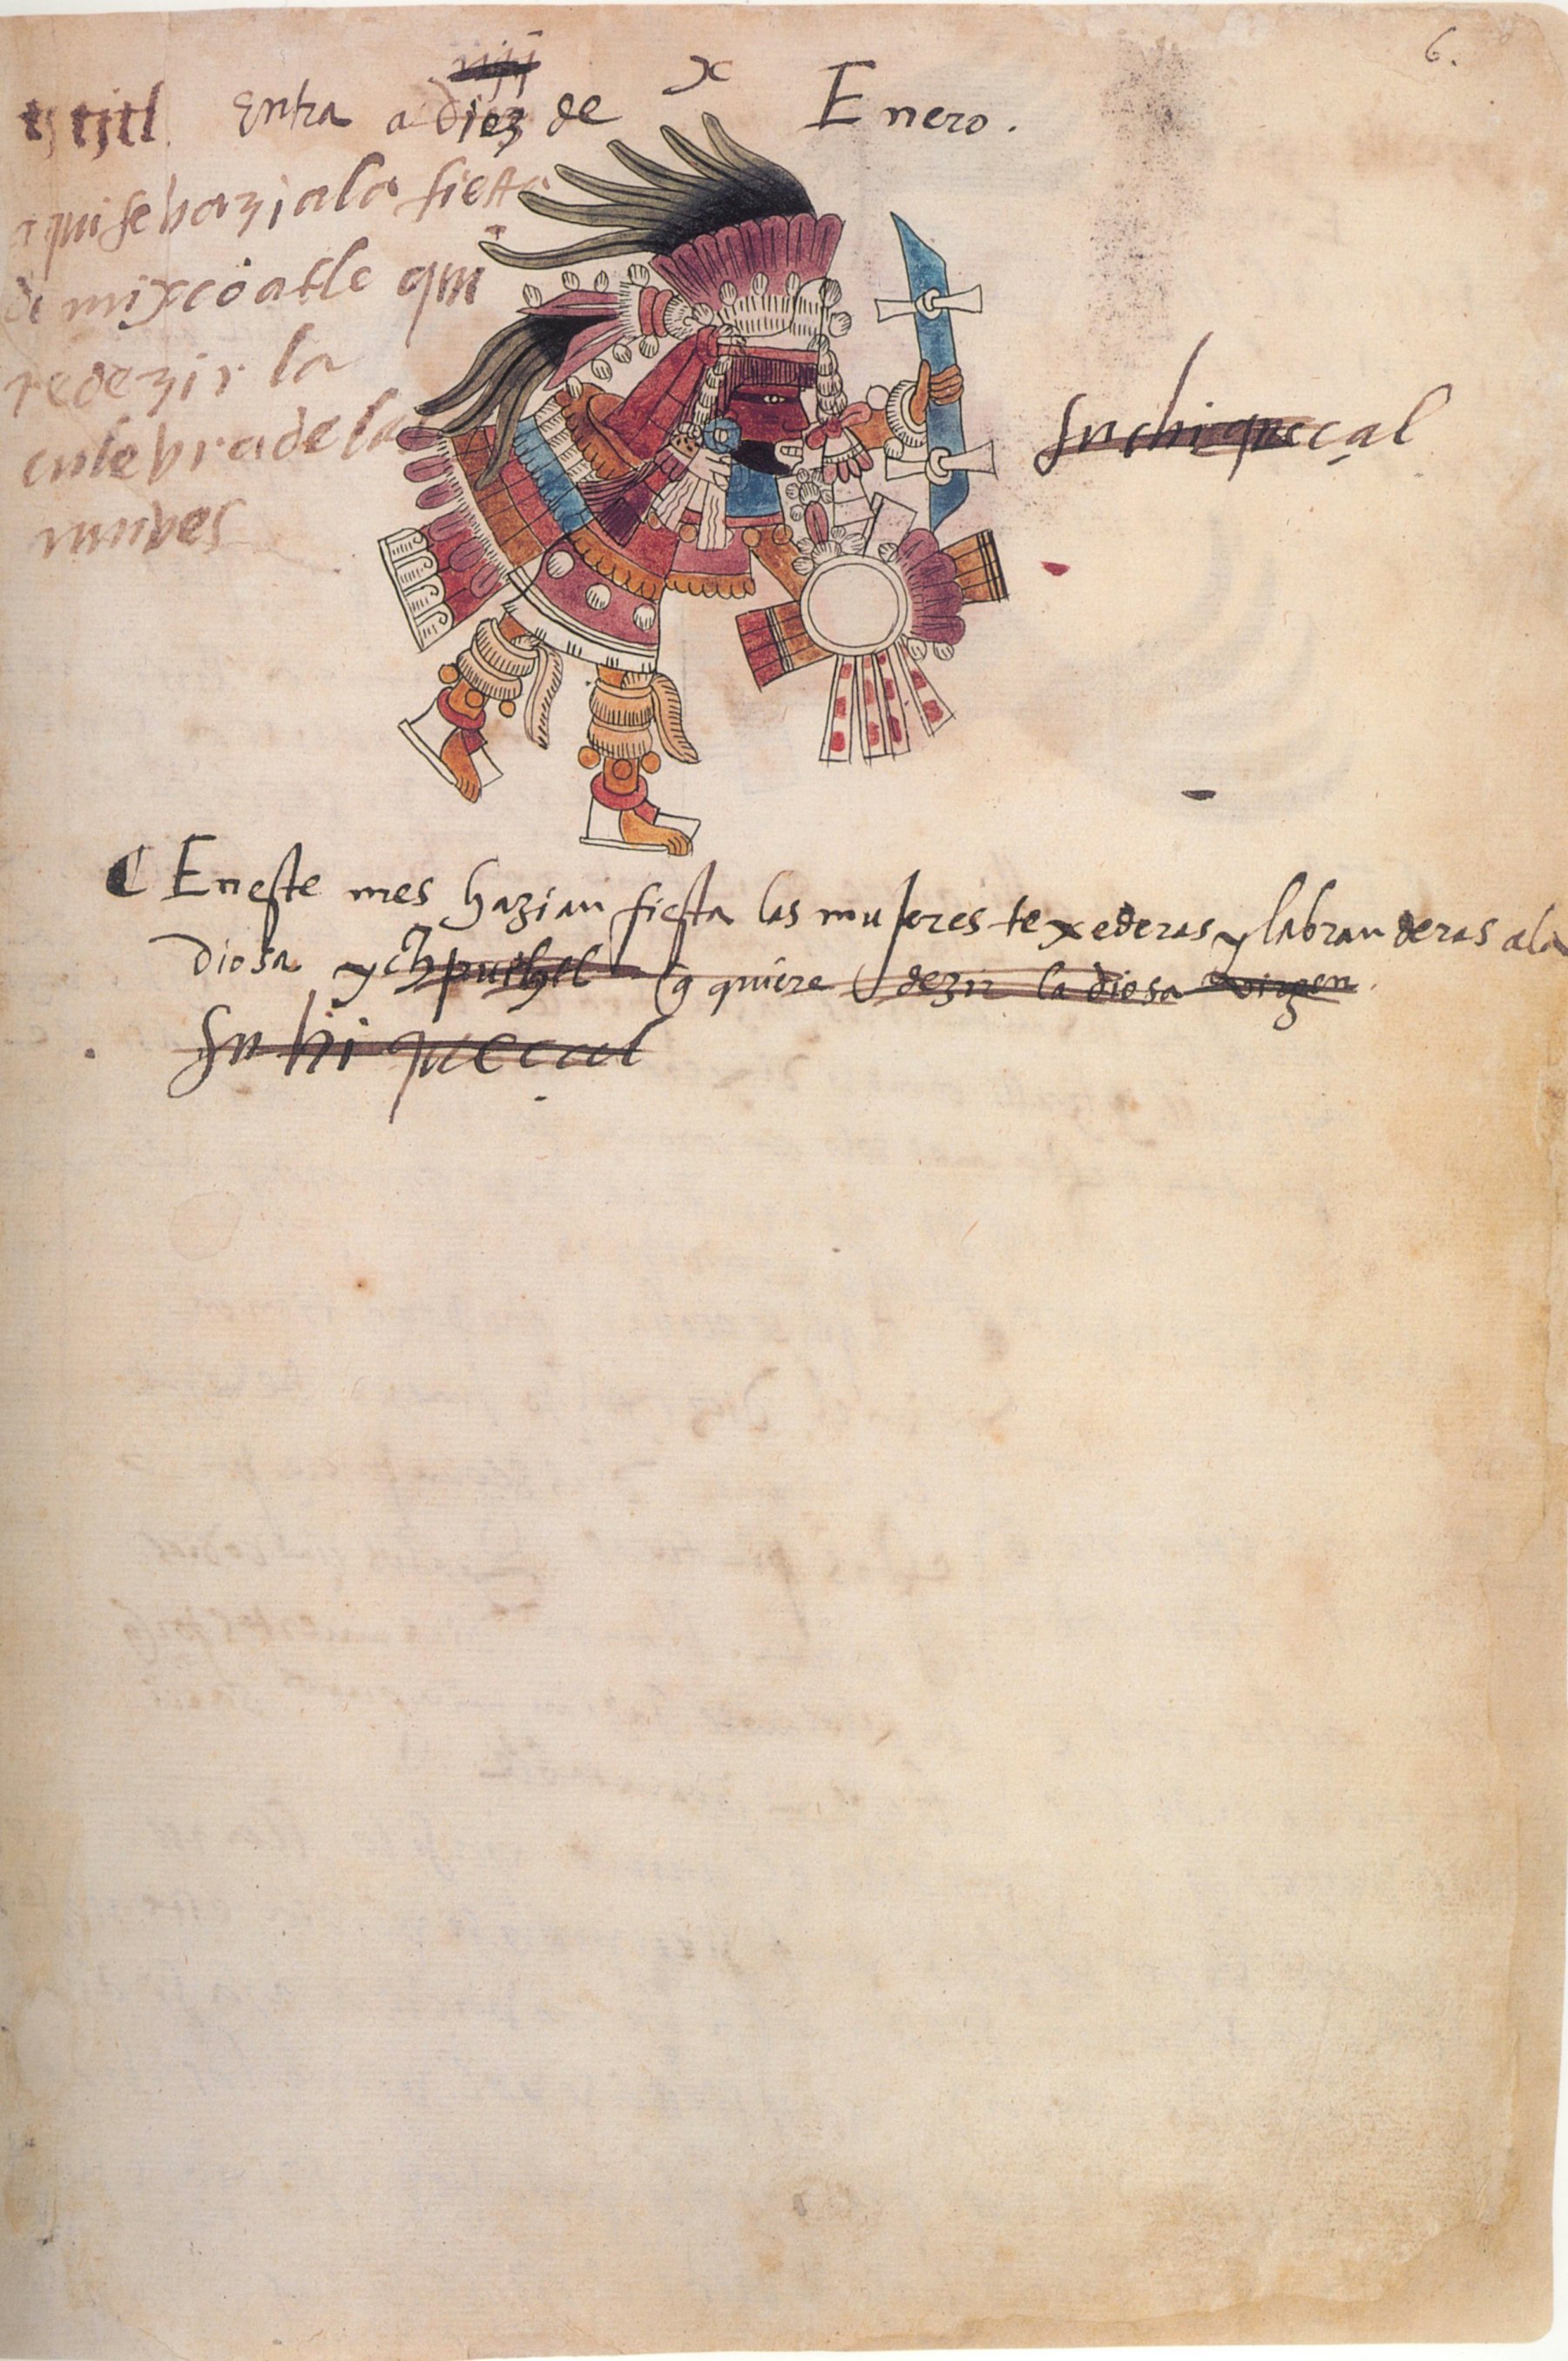 6.
tjtitl entra a diez de x Enero.
aqui se hazia la fiesta
de mixcoatle qui
re dezir la
culebra de las
nuves
suchiqueçal
En este mes hazian fiesta las mujeres texederas y labranderas ala
diosa ychpuchtl q quiere dezir la diosa virgen.
suhiqueçal